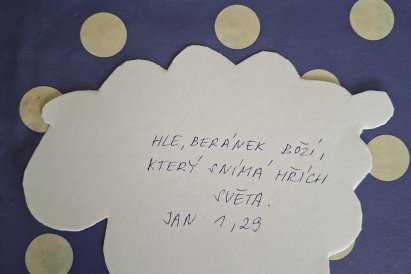 HLE, BERÁNEK BOŽÍ,
KTERÝ SNÍMÁ HŘÍCH
SVĚTA.
JAN 1,29